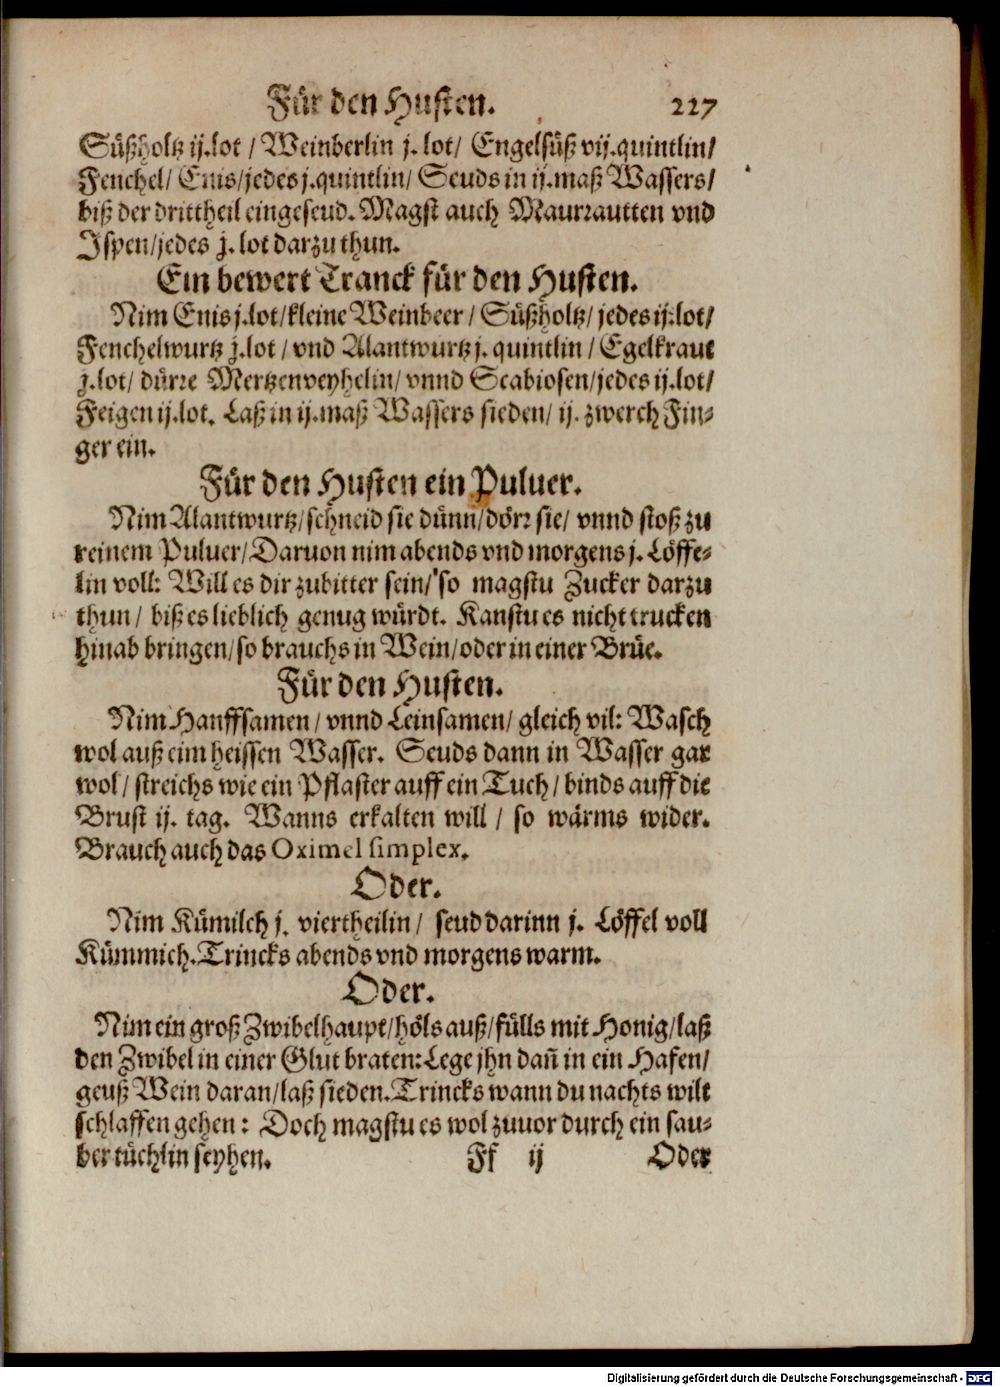 Für den Husten. 227
Süßholtz ij.lot / Weinberlin j. lot/ Engelsüß vij.quintlin/
Fenchel/ Enis/jedes j.quintlin/ Seuds in ij.maß Wassers/
biß der drittheil eingeseud. Magst auch Maurrautten vnd
Jspen/jedes j. lot darzu thun.
Ein bewert Tranck für den Husten.
Nim Enis j.lot/kleine Weinbeer / Süßholtz/ jedes ij.lot/
Fenchelwurtz j.lot / vnd Alantwurtz j. quintlin / Egelkraut
j.lot/ dürre Mertzenveyhelin/ vnnd Scabiosen/jedes ij.lot/
Feigen ij.lot. Laß in ij.maß Wassers sieden/ ij. zwerch Fin-
ger ein.
Für den Husten ein Puluer.
Nim Alantwurtz/schneid sie dünn/dörr sie/ vnnd stoß zu
reinem Puluer/Daruon nim abends vnd morgens j. Löffe-
lin voll: Will es dir zubitter sein/ so magstu Zucker darzu
thun/ biß es lieblich genug würdt. Kanstu es nicht trucken
hinab bringen/so brauchs in Wein/oder in einer Brüe.
Für den Husten.
Nim Hanffsamen/ vnnd Leinsamen/ gleich vil: Wasch
wol auß eim heissen Wasser. Seuds dann in Wasser gar
wol/ streichs wie ein Pflaster auff ein Tuch/ binds auff die
Brust ij. tag. Wanns erkalten will / so wärms wider.
Brauch auch das Oximel simplex.
Oder.
Nim Kümilch j. viertheilin/ seud darinn j. Löffel voll
Kümmich. Trincks abends vnd morgens warm.
Oder.
Nim ein groß Zwibelhaupt/höls auß/fülls mit Honig/laß
den Zwibel in einer Glut braten: Lege jhn dañ in ein Hafen/
geuß Wein daran/laß sieden. Trincks wann du nachts wilt
schlaffen gehen: Doch magstu es wol zuuor durch ein sau-
ber tüchlin seyhen. Ff ij Oder
Digitalisierung gefördert durch die Deutsche Forschungsgemeinschaft - DFG